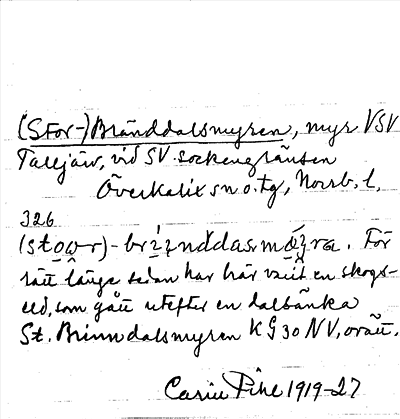 (Stor-)Bränddalsmyren, myr VSV
Talljärv, vid SV sockengränsen
Överkalix sn o. tg, Norrb. l.
326
För
rätt länge sedan har här varit en skogs-
eld, som gått utefter en dalbänka
St. Brinndalsmyren K G 30 NV, orätt.
Carin Pihl 1919-27